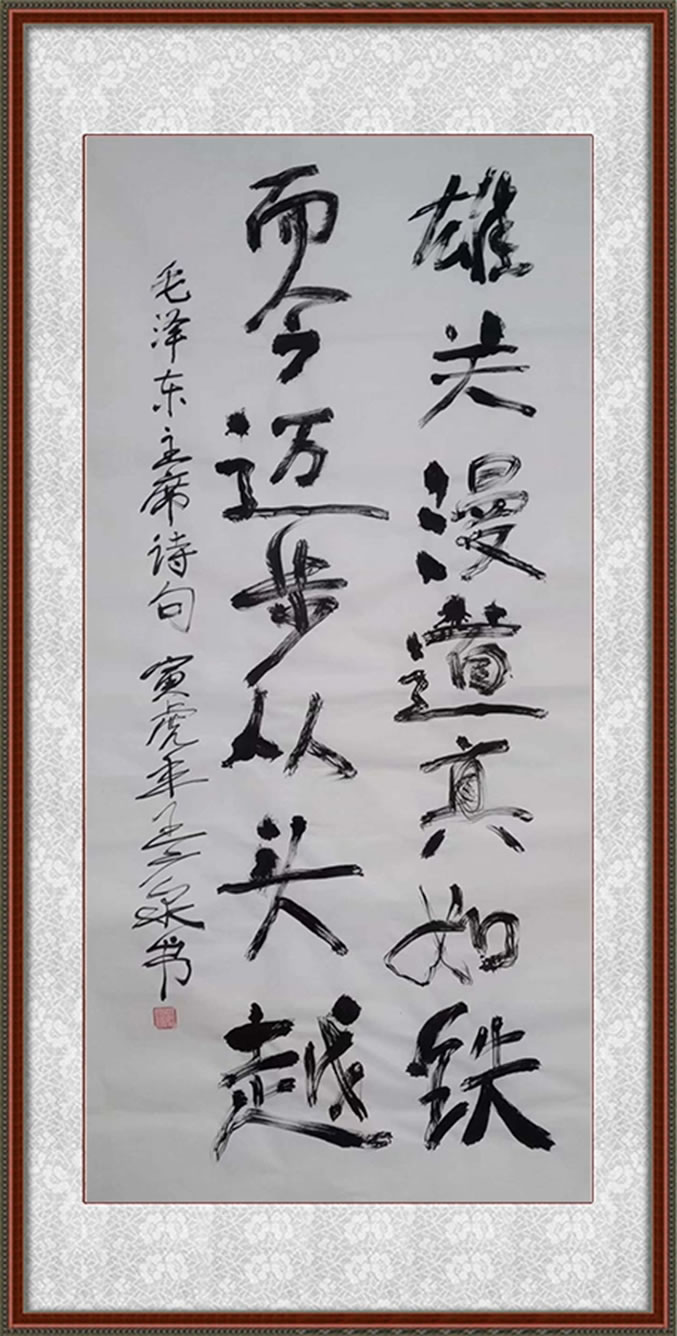 雄关漫道真如铁
而今迈步从头越
毛泽东主席诗句 寅虎年 泉书